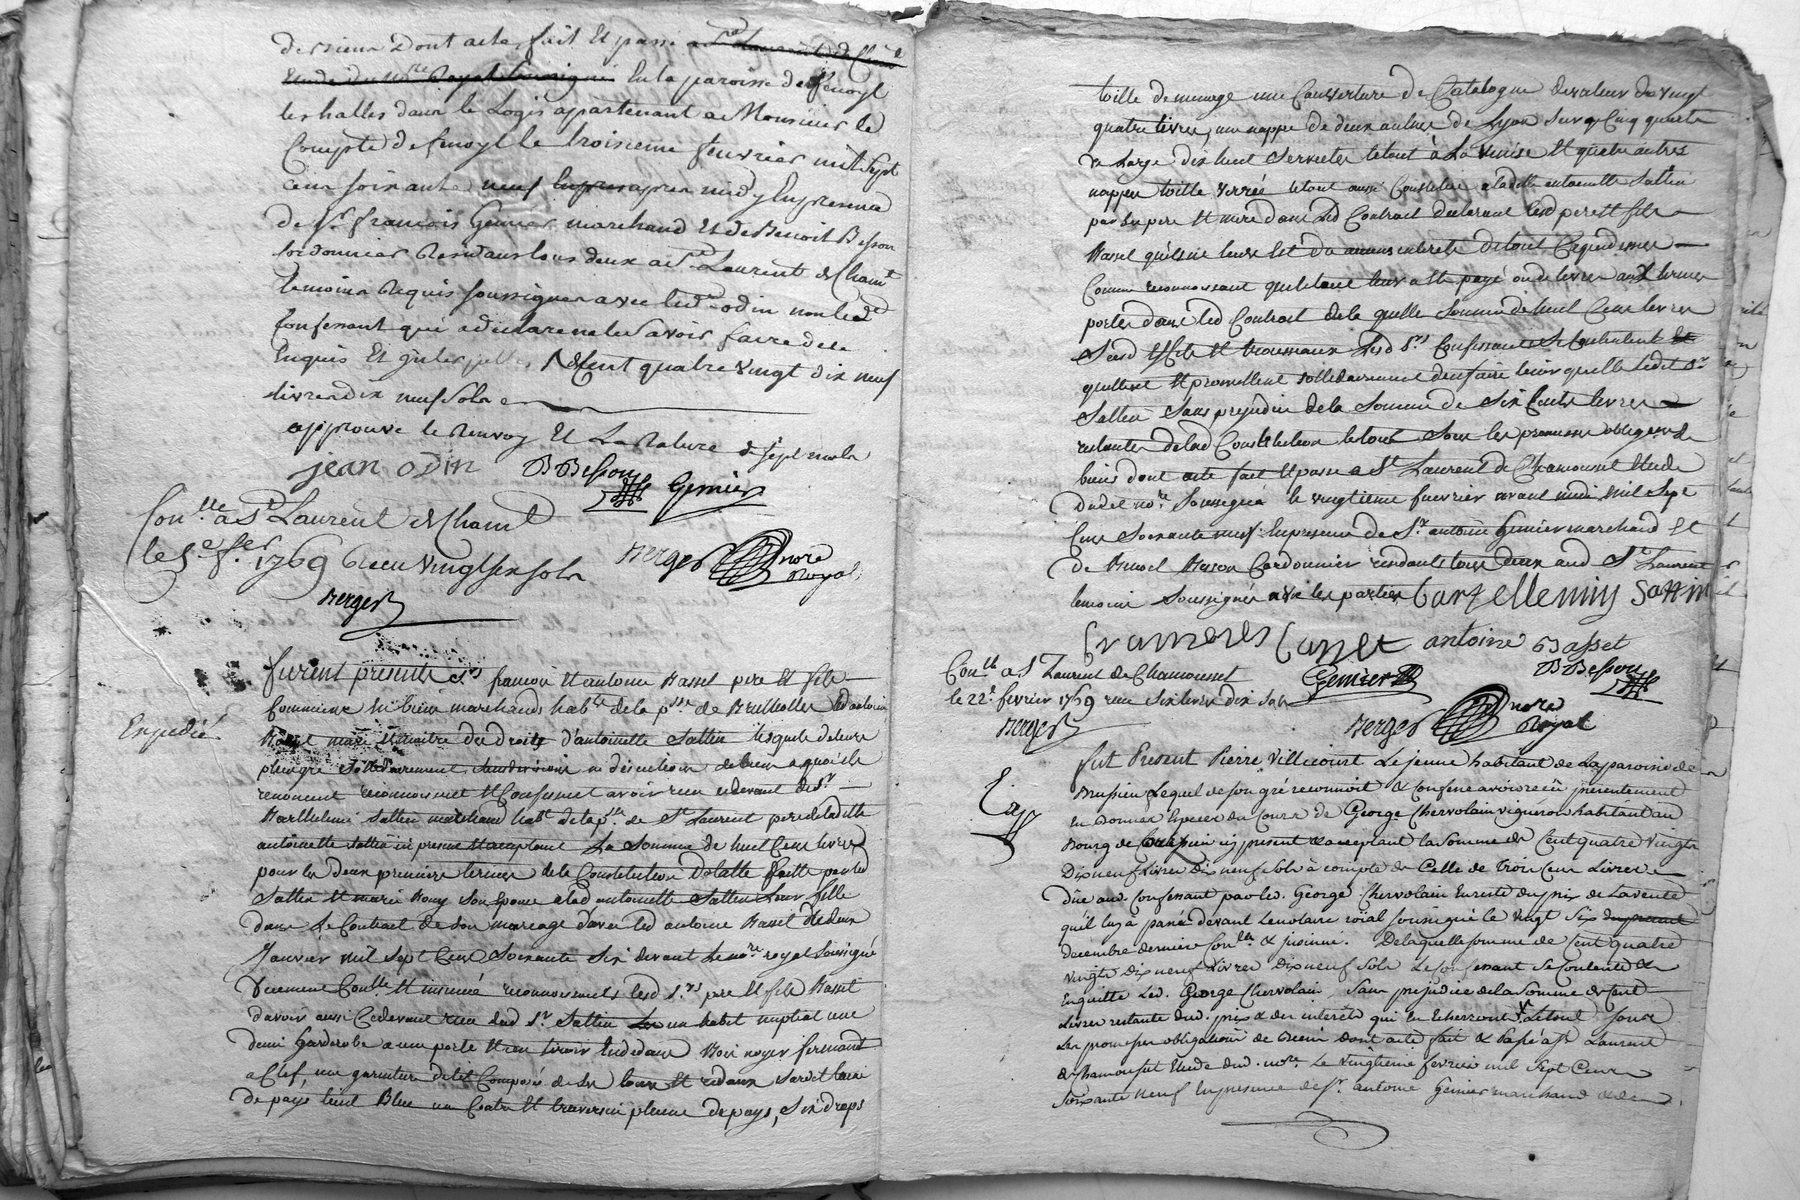 dont acte fait et passé
en la paroisse de fenoyl
les halles dans le Logis appartenant a Monsieur le
Compte de fenoyl le troisieme fevrier mil sept
cent soixante neuf apres midy En presence
de Sr. francois Genier marchand Et de Benoit Besson
cordonnier Residans tous deux a St Laurent de Chamt
temoins Requis soussignes avec ledt odin non led
Confessant qui a declaré ne le savoir faire de ce
Enquis Et Cent quatre vingt dix neuf
livres dix neuf sols
approuvé le Renvoy Et La Rature de sept mots
jean odin BBesson Genier
Conllé a St Laurent de Chamt
le 5e fer 1769 Reçu vingt six sols
Berger Berger nore
Royal
furent presents Srs francois Et antoine Basset pere Et fils
Commun En biens marchands habts de la psse de Brullolles led antoine
Basset mari Et maitre des droits d'antoinette Sattin lesquels de leur
plein gré Solidairement
Expedié
renoncent reconnoissent Et Confessent avoir reçu cy devant de Sr
Barthelemi Sattin marchand habt de la psse de St Laurent pere de ladite
antoinette Sattin cy present Et acceptant La Somme de huit Cent livres
pour les deux premiers termes de la Constitution Dotalle faitte par led
Sattin Et marie son Epouse a lad antoinette Sattin Leur fille
dans Le Contrat de son mariage d'avec led antoine Basset du deux
Janvier mil sept Cent Soixante Six devant Le nore royal Soussigné
duement Conllé Et insinué reconnoissent lesd Srs pere Et fils Basset
d'avoir aussi Cy devant reçu dud Sr Sattin un habit nuptial une
demi Garderobe a une porte Et un tiroir Endedans Bois noyer fermant
a Clef, une garniture de lit Composée de Six tours Et rideaux
de pays teint Bleu un Coitre Et traversin plume de pays, Six draps
toille de menage une Couverture de Catalogne de valeur de vingt
quatre livres, une nappe de deux aulnes de Lyon sur Cinq quarts
de Large dix huit Serviettes letout à La Venise Et quatre autres
nappes toille letout aussi Constitué a ladite antoinette Sattin
par Ses pere Et mere dans led Contrat declarent lesd pere Et fils
Basset qu'il ne leur Est du aucuns interets de tout Ce que dessus
Comme reconnoissant que letout leur a Eté payé ou delivré aux termes
portés dans led Contrat de la quelle Somme de huit Cent livres
Susd Effets Et trousseaux Lesd Srs Confessants Se Contentent
quittent Et promettent Solidairement d'en faire tenir quitte ledit Sr
Sattin Sans prejudice de la Somme de Six Cents livres
restante de lad Constitution letout Sous les promesses obligaon de
biens dont acte fait Et passé a St Laurent de Chamousset Etude
dudit nore Soussigné le vingtieme fevrier avant midi mil Sept
Cent Soixante neuf En presence de Sr antoine Genier marchand Et
de Benoit Besson Cordonnier residants tous deux aud St Laurent
temoins Soussignes avec les parties bartellemiy Sattin
antoine Basset
Conllé a St Laurent de Chamousset Genier BBesson
le 22e fevrier 1769 reçu Six livres dix Sols
Berger Berger nore
Royal
fut Present Pierre Villicourt Le jeune habitant de La paroisse de
Brussieu Lequel de son gré reconnoit & confesse avoir reçu presentement
En bonnes Especes du Cours de George Chervolain vigneron habitant au
Bourg de present & acceptant la somme de Cent quatre vingt
Dix neuf Livres dix neuf Sols à compte de Celle de trois Cent Livres
Düe aud. confessant par led. George Chervolain En reste du prix de La vente
qu'il luy à passé devant Le notaire roïal soussigné le vingt six
decembre dernier Conllé & insinué. De laquelle somme de Cent quatre
vingt Dix neuf Livres Dix neuf Sols Le confessant Se Contente &
En quitte Led. George Chervolain, Sans prejudice de la Somme de Cent
Livres restante dud. prix & des interets qui En Echerront Le tout sous
Les promesses obligation de Biens dont acte fait & passé à St Laurent
de chamousset Etude dud. nore Le vingtieme fevrier mil Sept Cent
Soixante neuf En presence de Sr. antoine Genier marchand & de